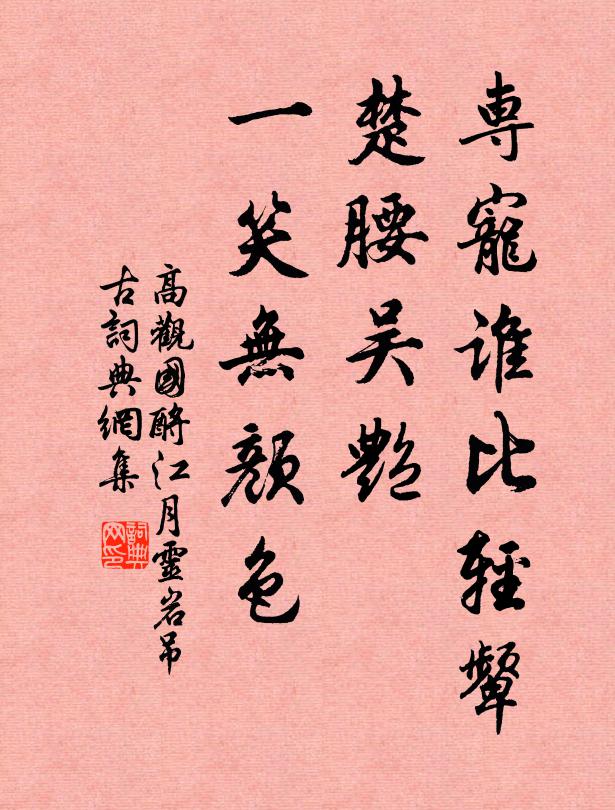 專寵誰比輕顰
楚腰吴艷
一笑無顔色
高觀國酹江月靈岩吊
古詞典網集
詞典网印